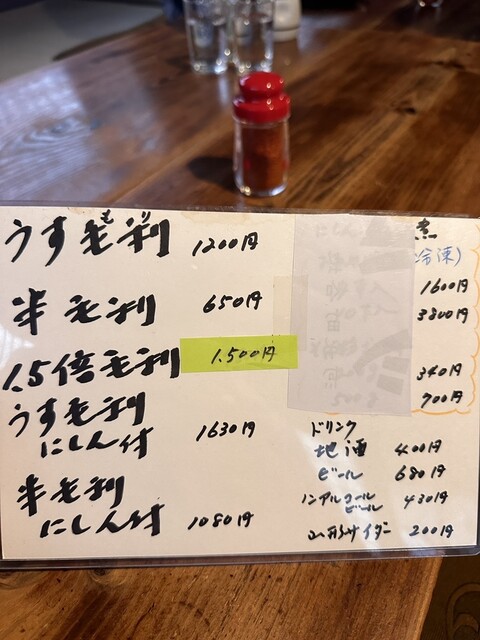 うす毛利 1200円
もり
半毛利 650円
1.5倍毛利 1.500円
うす毛利
にしん付 1630円
半毛利
にしん付 1080円
煮
冷凍)
1600円
3800円
340円
700円
ドリンク
地酒 400円
ビール 680円
ノンアルコール
ビール 430円
山形サイダー 200円